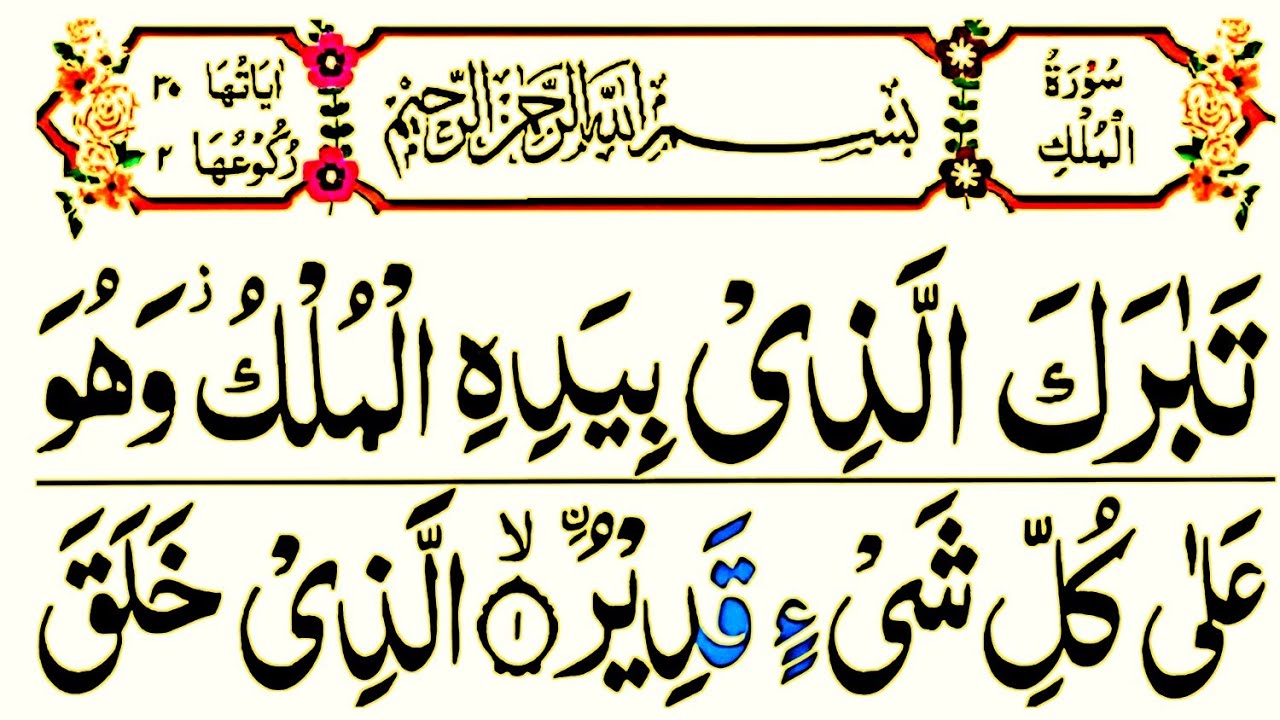 سُوْرَةُ الْمُلْكِ
بِسْمِ اللّٰهِ الرَّحْمٰنِ الرَّحِيْمِ
اٰيَاتُهَا ٣٠
رُكُوْعُهَا ٢
تَبٰرَكَ الَّذِىْ بِيَدِهِ الْمُلْكُ ز وَهُوَ
عَلٰى كُلِّ شَىْءٍ قَدِيْرُ ࣙنِ لا ١ الَّذِىْ خَلَقَ